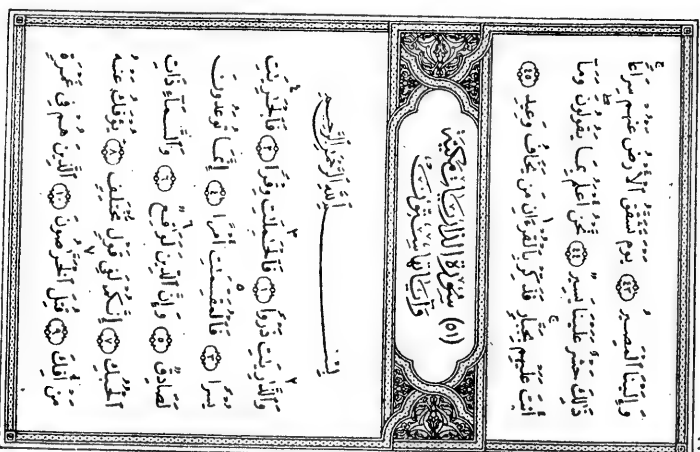 وَإِلَيْنَا ٱلْمَصِيرُ ﴿٤٣﴾ يَوْمَ تَشَقَّقُ ٱلْأَرْضُ عَنْهُمْ سِرَاعًا
ذَٰلِكَ حَشْرٌ عَلَيْنَا يَسِيرٌ ﴿٤٤﴾ نَّحْنُ أَعْلَمُ بِمَا يَقُولُونَ وَمَآ
أَنتَ عَلَيْهِم بِجَبَّارٍ فَذَكِّرْ بِٱلْقُرْءَانِ مَن يَخَافُ وَعِيدِ ﴿٤٥﴾
(٥١) سُورَةُ الذَّارِيَاتِ مَكِّيَّة
وَآيَاتُهَا سِتُّونَ
بِسْمِ ٱللَّهِ ٱلرَّحْمَٰنِ ٱلرَّحِيمِ
وَٱلذَّٰرِيَٰتِ ذَرْوًا ﴿١﴾ فَٱلْحَٰمِلَٰتِ وِقْرًا ﴿٢﴾ فَٱلْجَٰرِيَٰتِ
يُسْرًا ﴿٣﴾ فَٱلْمُقَسِّمَٰتِ أَمْرًا ﴿٤﴾ إِنَّمَا تُوعَدُونَ
لَصَادِقٌ ﴿٥﴾ وَإِنَّ ٱلدِّينَ لَوَٰقِعٌ ﴿٦﴾ وَٱلسَّمَآءِ ذَاتِ
ٱلْحُبُكِ ﴿٧﴾ إِنَّكُمْ لَفِى قَوْلٍ مُّخْتَلِفٍ ﴿٨﴾ يُؤْفَكُ عَنْهُ
مَنْ أُفِكَ ﴿٩﴾ قُتِلَ ٱلْخَرَّٰصُونَ ﴿١٠﴾ ٱلَّذِينَ هُمْ فِى غَمْرَةٍ